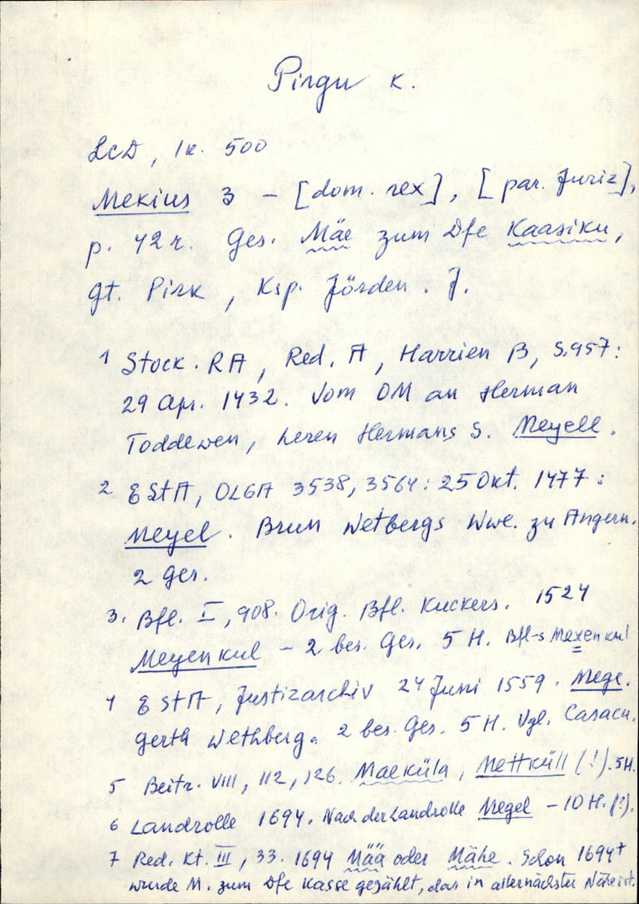 Pirgu k.
LCD, lk. 500
Mekius 3 - [dom. rex], [par. Juriz],
p. 42r. Ges. Mäe zum Dfe Kaasiku,
gt. Pirk, Ksp. Jörden. J.
1 Stock. RA, Red. A, Harrien B, S.957:
29 Apr. 1432. Vom OM an Herman
Toddewen, heren Hermans S. Meyell.
2 EStA, OLGA 3538, 3564: 25 Okt. 1477:
Meyel. Brun Wetbergs Wwe. zu Angern.
2 Ges.
3. Bfl. I, 908. Orig. Bfl. Kuckers. 1524
Meyenkul - 2 bes. Ges. 5 H. Bfl-s Mexenkul
4 EStA, Justizarchiv 24 Juni 1559. Mege.
gerth Wethberg. 2 bes. Ges. 5 H. Vgl. Casacu.
5 Beitr. VIII, 112, 126. Maeküla, Mettküll (!). 5H.
6 Landrolle 1694. Nach der Landrolle Megel - 10 H. (!).
7 Red. Kt. III, 33. 1694 Mää oder Mähe. Schon 1694
wurde M. zum Dfe Kasse gezählt, das in allernächster Nähe ist.